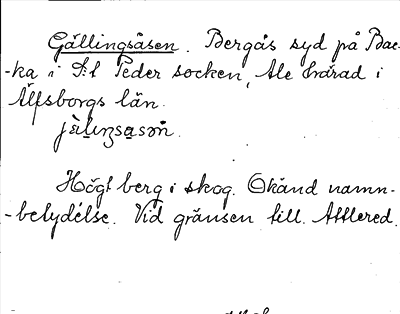 Gällingsåsen. Bergås syd på Bac-
-ka i S:t Peder socken, Ale härad i
Älfsborgs län.
Högt berg i skog. Okänd namn-
-betydelse. Vid gränsen till Alfhered.